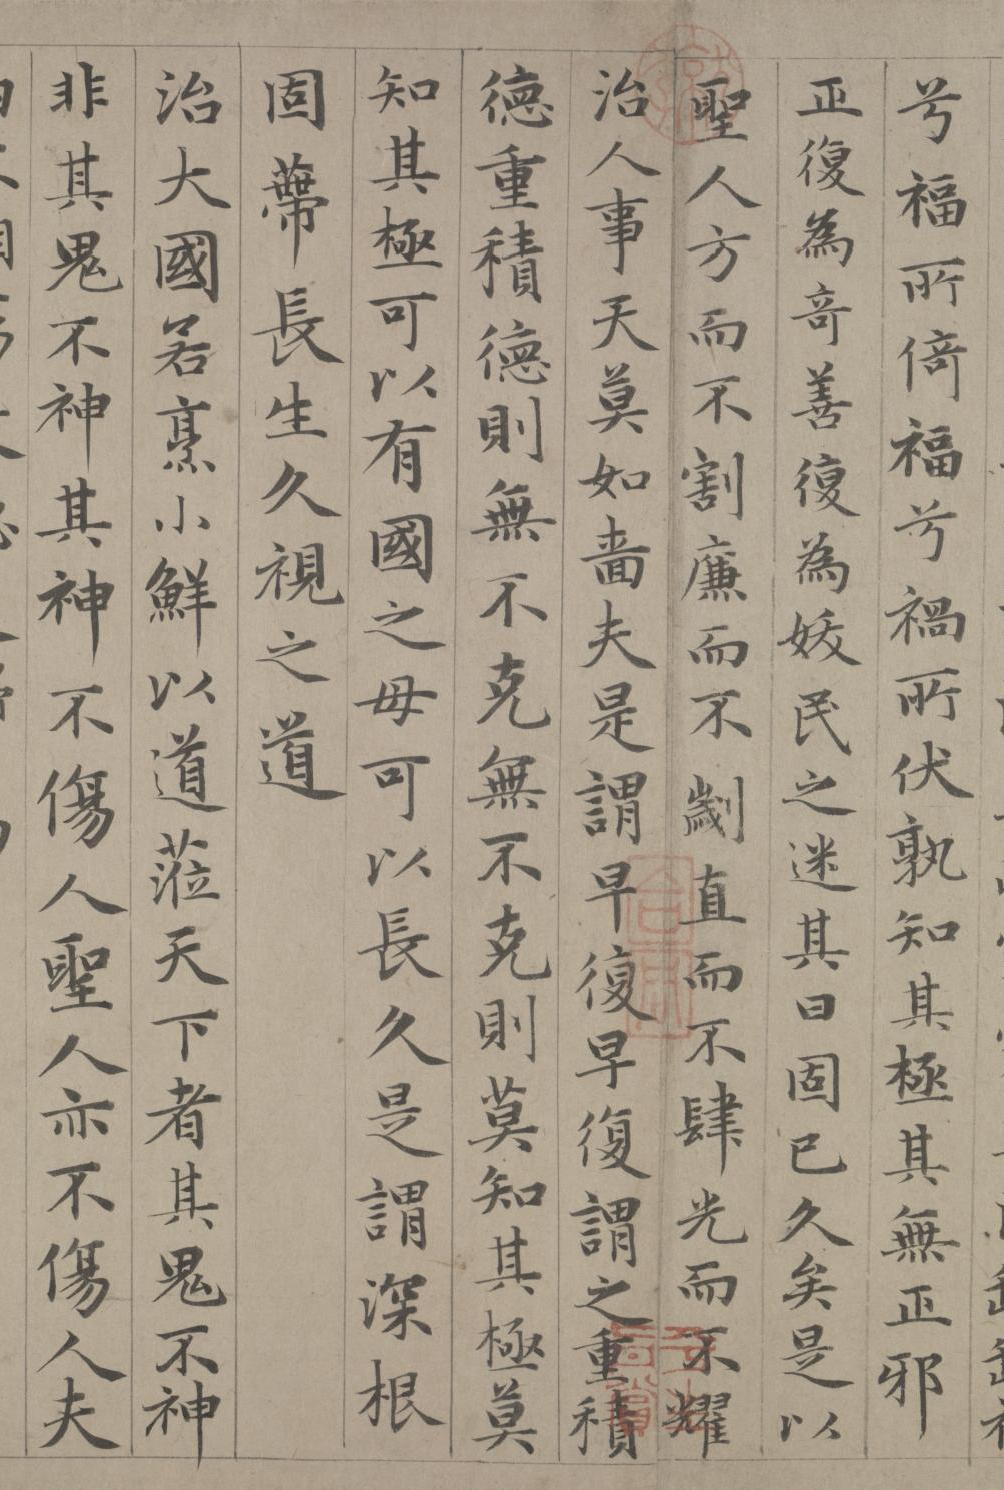 兮福所倚福兮禍所伏孰知其極其無正邪
正復為奇善復為妖民之迷其日固已久矣是以
聖人方而不割廉而不劌直而不肆光而不耀
治人事天莫如嗇夫是謂早復早復謂之重積
德重積德則無不克無不克則莫知其極莫
知其極可以有國之母可以長久是謂深根
固蔕長生久視之道
治大國若烹小鮮以道蒞天下者其鬼不神
非其鬼不神其神不傷人聖人亦不傷人夫